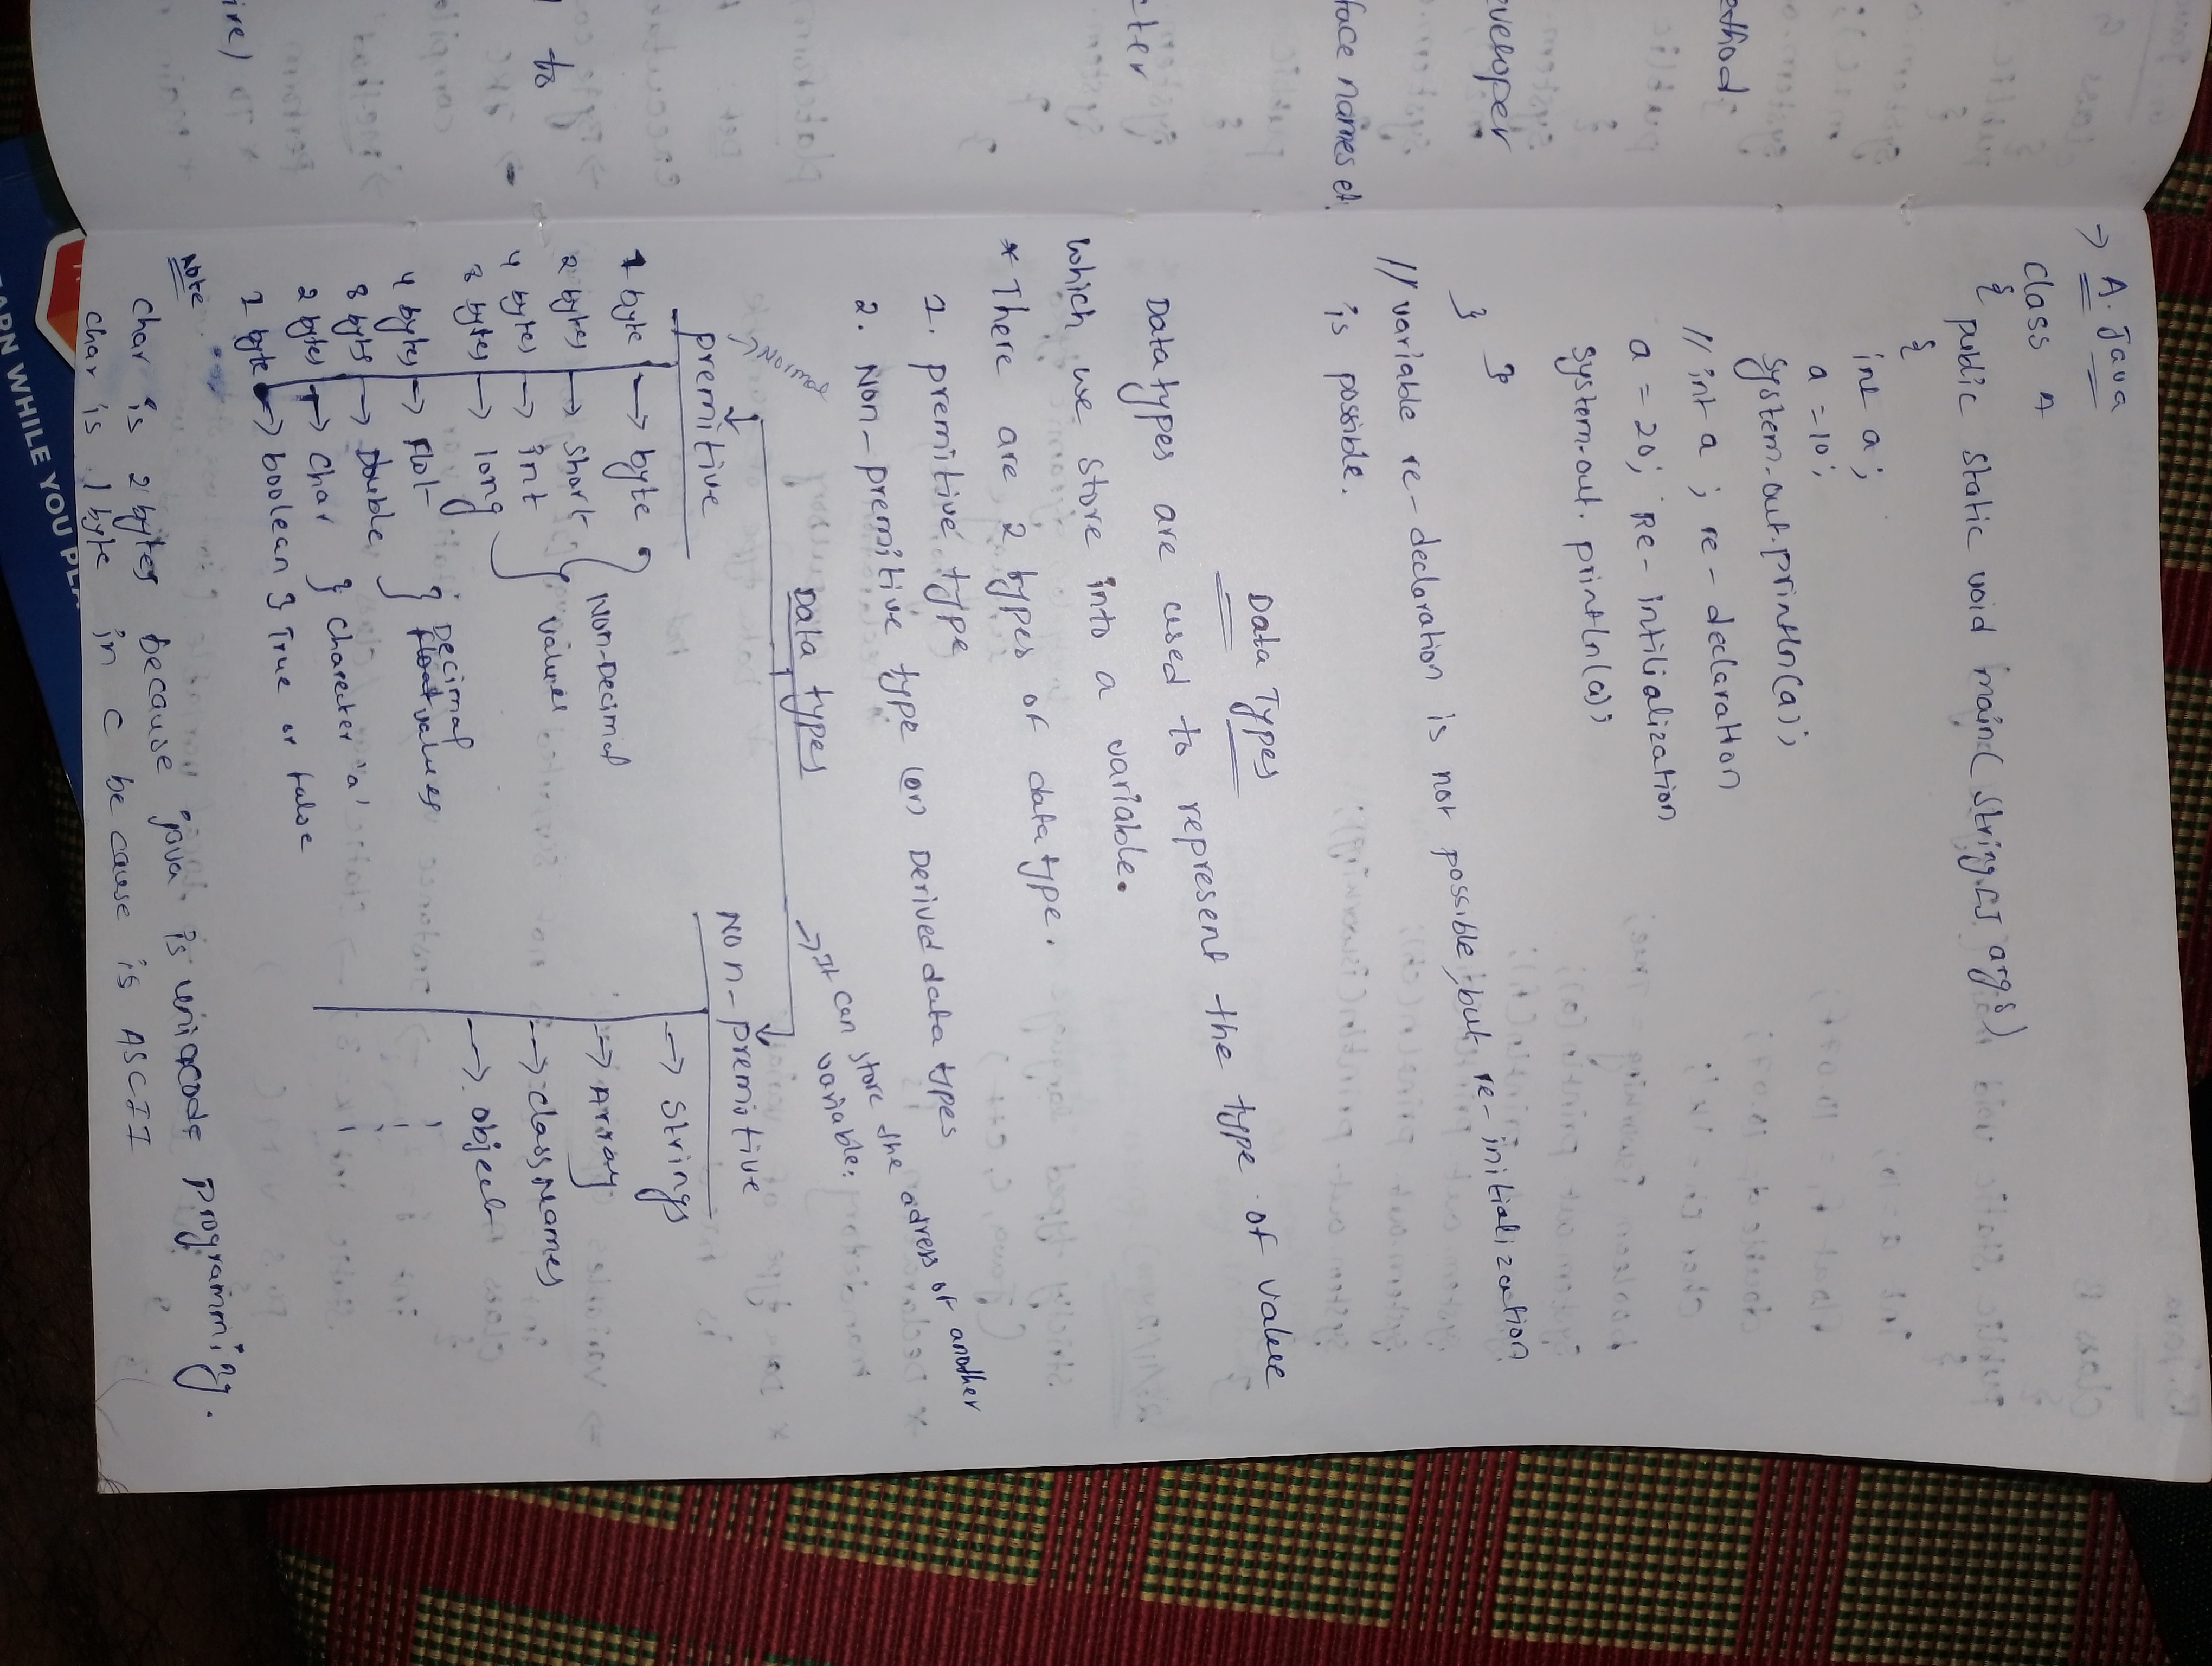 ethod
eveloper
face names et
ter
to
ire)
→ A. Java
class A
{
public static void main( String[] args)
{
int a;
a = 10;
System.out.println(a);
// int a ; re - declaration
a = 20; Re - intilialization
System.out.println(a);
}
}
// variable re - decloration is not possible, but re - initialization
is possible.
Data Types
Data types are used to represent the type of value
which we store into a variable.
* There are 2 types of data type.
1. premitive type
2. Non - premitive type (or) Derived data types
→ It can store the adress of another
variable.
Data types
premitive
Non - premitive
1 byte → byte
2 bytes → short
4 bytes → int
8 bytes → long
Non-Decimal
values
4 bytes → Flot
8 byte → Double
} Decimal
values
2 bytes → Char } charecter 'a'
1 byte → boolean } True or false
→ Strings
→ Array
→ class Names
→ object
Note
char is 2 bytes because java is unicode Programming.
char is 1 byte in c be cause is ASCII
EARN WHILE YOU PLA